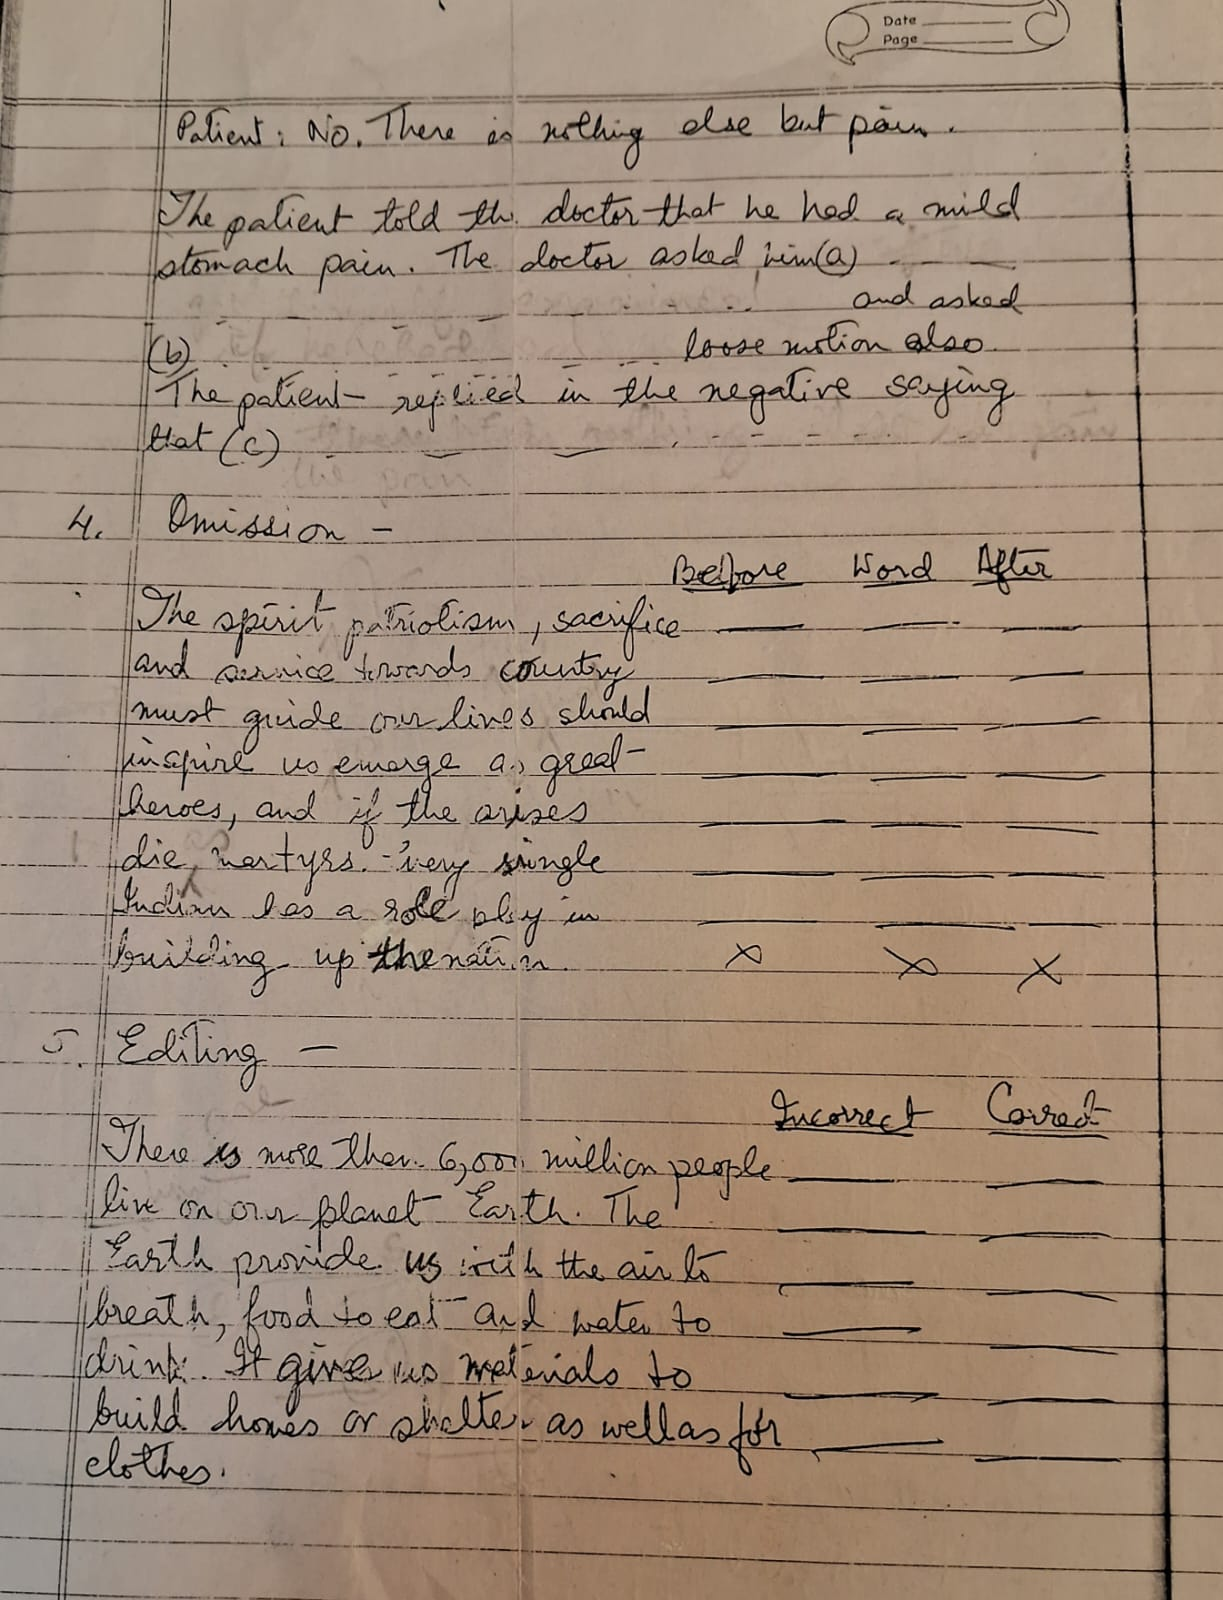 Date
Page
Patient: No. There is nothing else but pain.
The patient told the doctor that he had a mild
stomach pain. The doctor asked him (a) - - -
and asked
(b) loose motion also.
The patient replied in the negative saying
that (c)
4. Omission -
Before Word After
The spirit patriotism, sacrifice
and service towards country
must guide our lives should
inspire us emerge as great
heroes, and if the arises
die, martyrs. Every single
Indian has a role play in
building up the nation. X X X
5. Editing -
Incorrect Correct
There is more than 6,000 million people
live on our planet Earth. The
Earth provide us with the air to
breath, food to eat and water to
drink. It give us materials to
build homes or shelter as well as for
clothes.